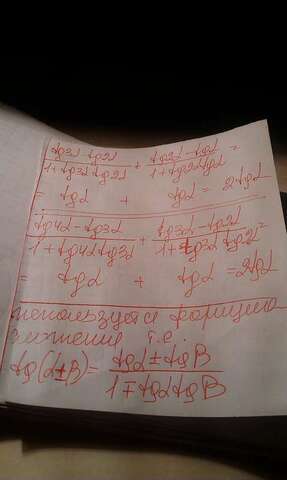 tg3α tg2α / 1+tg3α tg2α + tg2α-tgα / 1+tg2αtgα =
= tgα + tgα = 2tgα
tg4α - tg3α / 1+tg4α tg3α + tg3α-tg2α / 1+tg3α tg2α =
= tgα + tgα = 2tgα
используется формула
т.е.
tg(α±β) = tgα ± tgβ / 1∓tgαtgβ